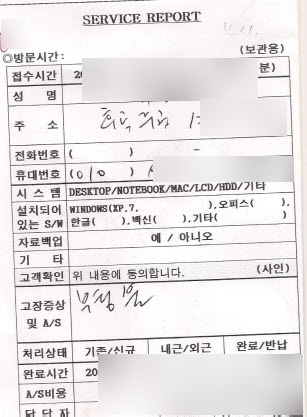 SERVICE REPORT
◎방문시간: (보관용)
접수시간 20 분)
성 명
주 소
전화번호 ( ) -
휴대번호 (010)
시 스 템 DESKTOP/NOTEBOOK/MAC/LCD/HDD/기타
설치되어 있는 S/W WINDOWS(XP,7, ),오피스( ),
한글( ),백신( ),기타( )
자료백업 예 / 아니오
기 타
고객확인 위 내용에 동의합니다. (사인)
고장증상
및 A/S
처리상태 기존/신규 내근/외근 완료/반납
완료시간 20
A/S비용
담 당 자